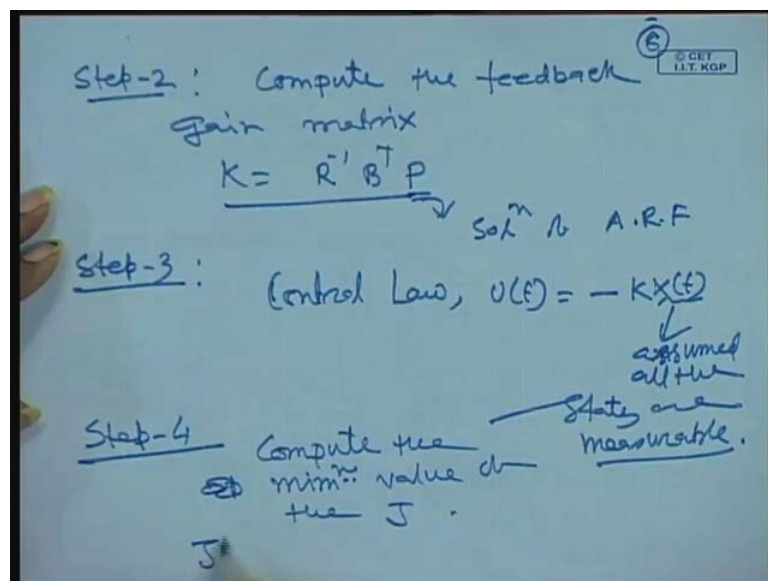 6
© CET
I.I.T. KGP
Step-2 : Compute the feedback
gain matrix
K = R⁻¹ Bᵀ P
Solⁿ of A.R.E
Step-3 : Control Law, U(t) = - KX(t)
assumed
all the
states are
measurable.
Step-4 Compute the
mimᵐ value of
the J .
J